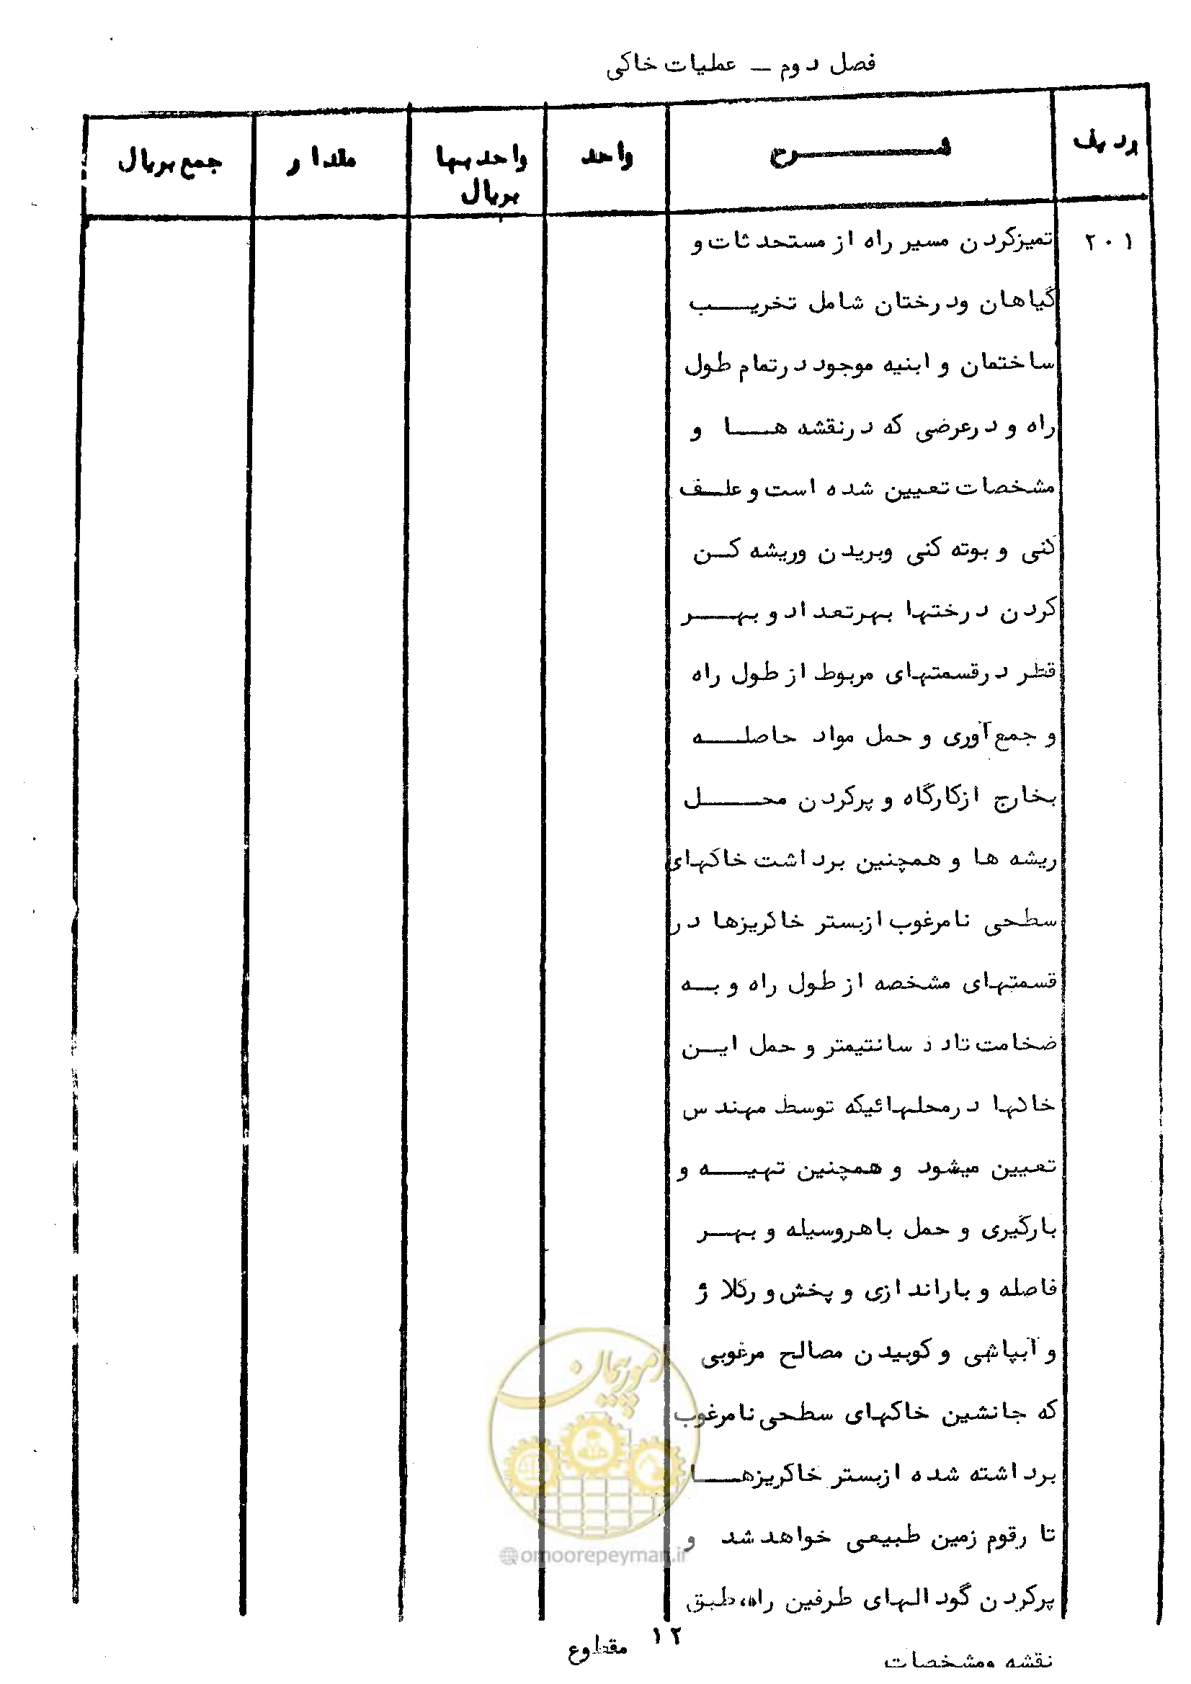 فصل دوم ــ عملیات خاکی
ردیف
شرح
واحد
واحد بها
بریال
مقدار
جمع بریال
۲۰۱
تمیزکردن مسیر راه از مستحدثات و
گیاهان ودرختان شامل تخریب
ساختمان و ابنیه موجود درتمام طول
راه و درعرضی که درنقشه ها و
مشخصات تعیین شده است و علف
کنی و بوته کنی وبریدن وریشه کن
کردن درختها بهرتعداد و بهر
قطر درقسمتهای مربوط از طول راه
و جمع‌آوری و حمل مواد حاصله
بخارج ازکارگاه و پرکردن محل
ریشه ها و همچنین برداشت خاکهای
سطحی نامرغوب ازبستر خاکریزها در
قسمتهای مشخصه از طول راه و به
ضخامت تا سانتیمتر و حمل این
خاکها درمحلهائیکه توسط مهندس
تعیین میشود و همچنین تهیه و
بارگیری و حمل باهروسیله و بهر
فاصله و باراندازی و پخش و رگلاژ
و آبپاشی و کوبیدن مصالح مرغوبی
که جانشین خاکهای سطحی نامرغوب
برداشته شده ازبستر خاکریزها
تا رقوم زمین طبیعی خواهد شد و
پرکردن گودالهای طرفین راه، طبق
نقشه ومشخصات
۱۲
مقطوع
امور پیمان
@omoorepeyman.ir